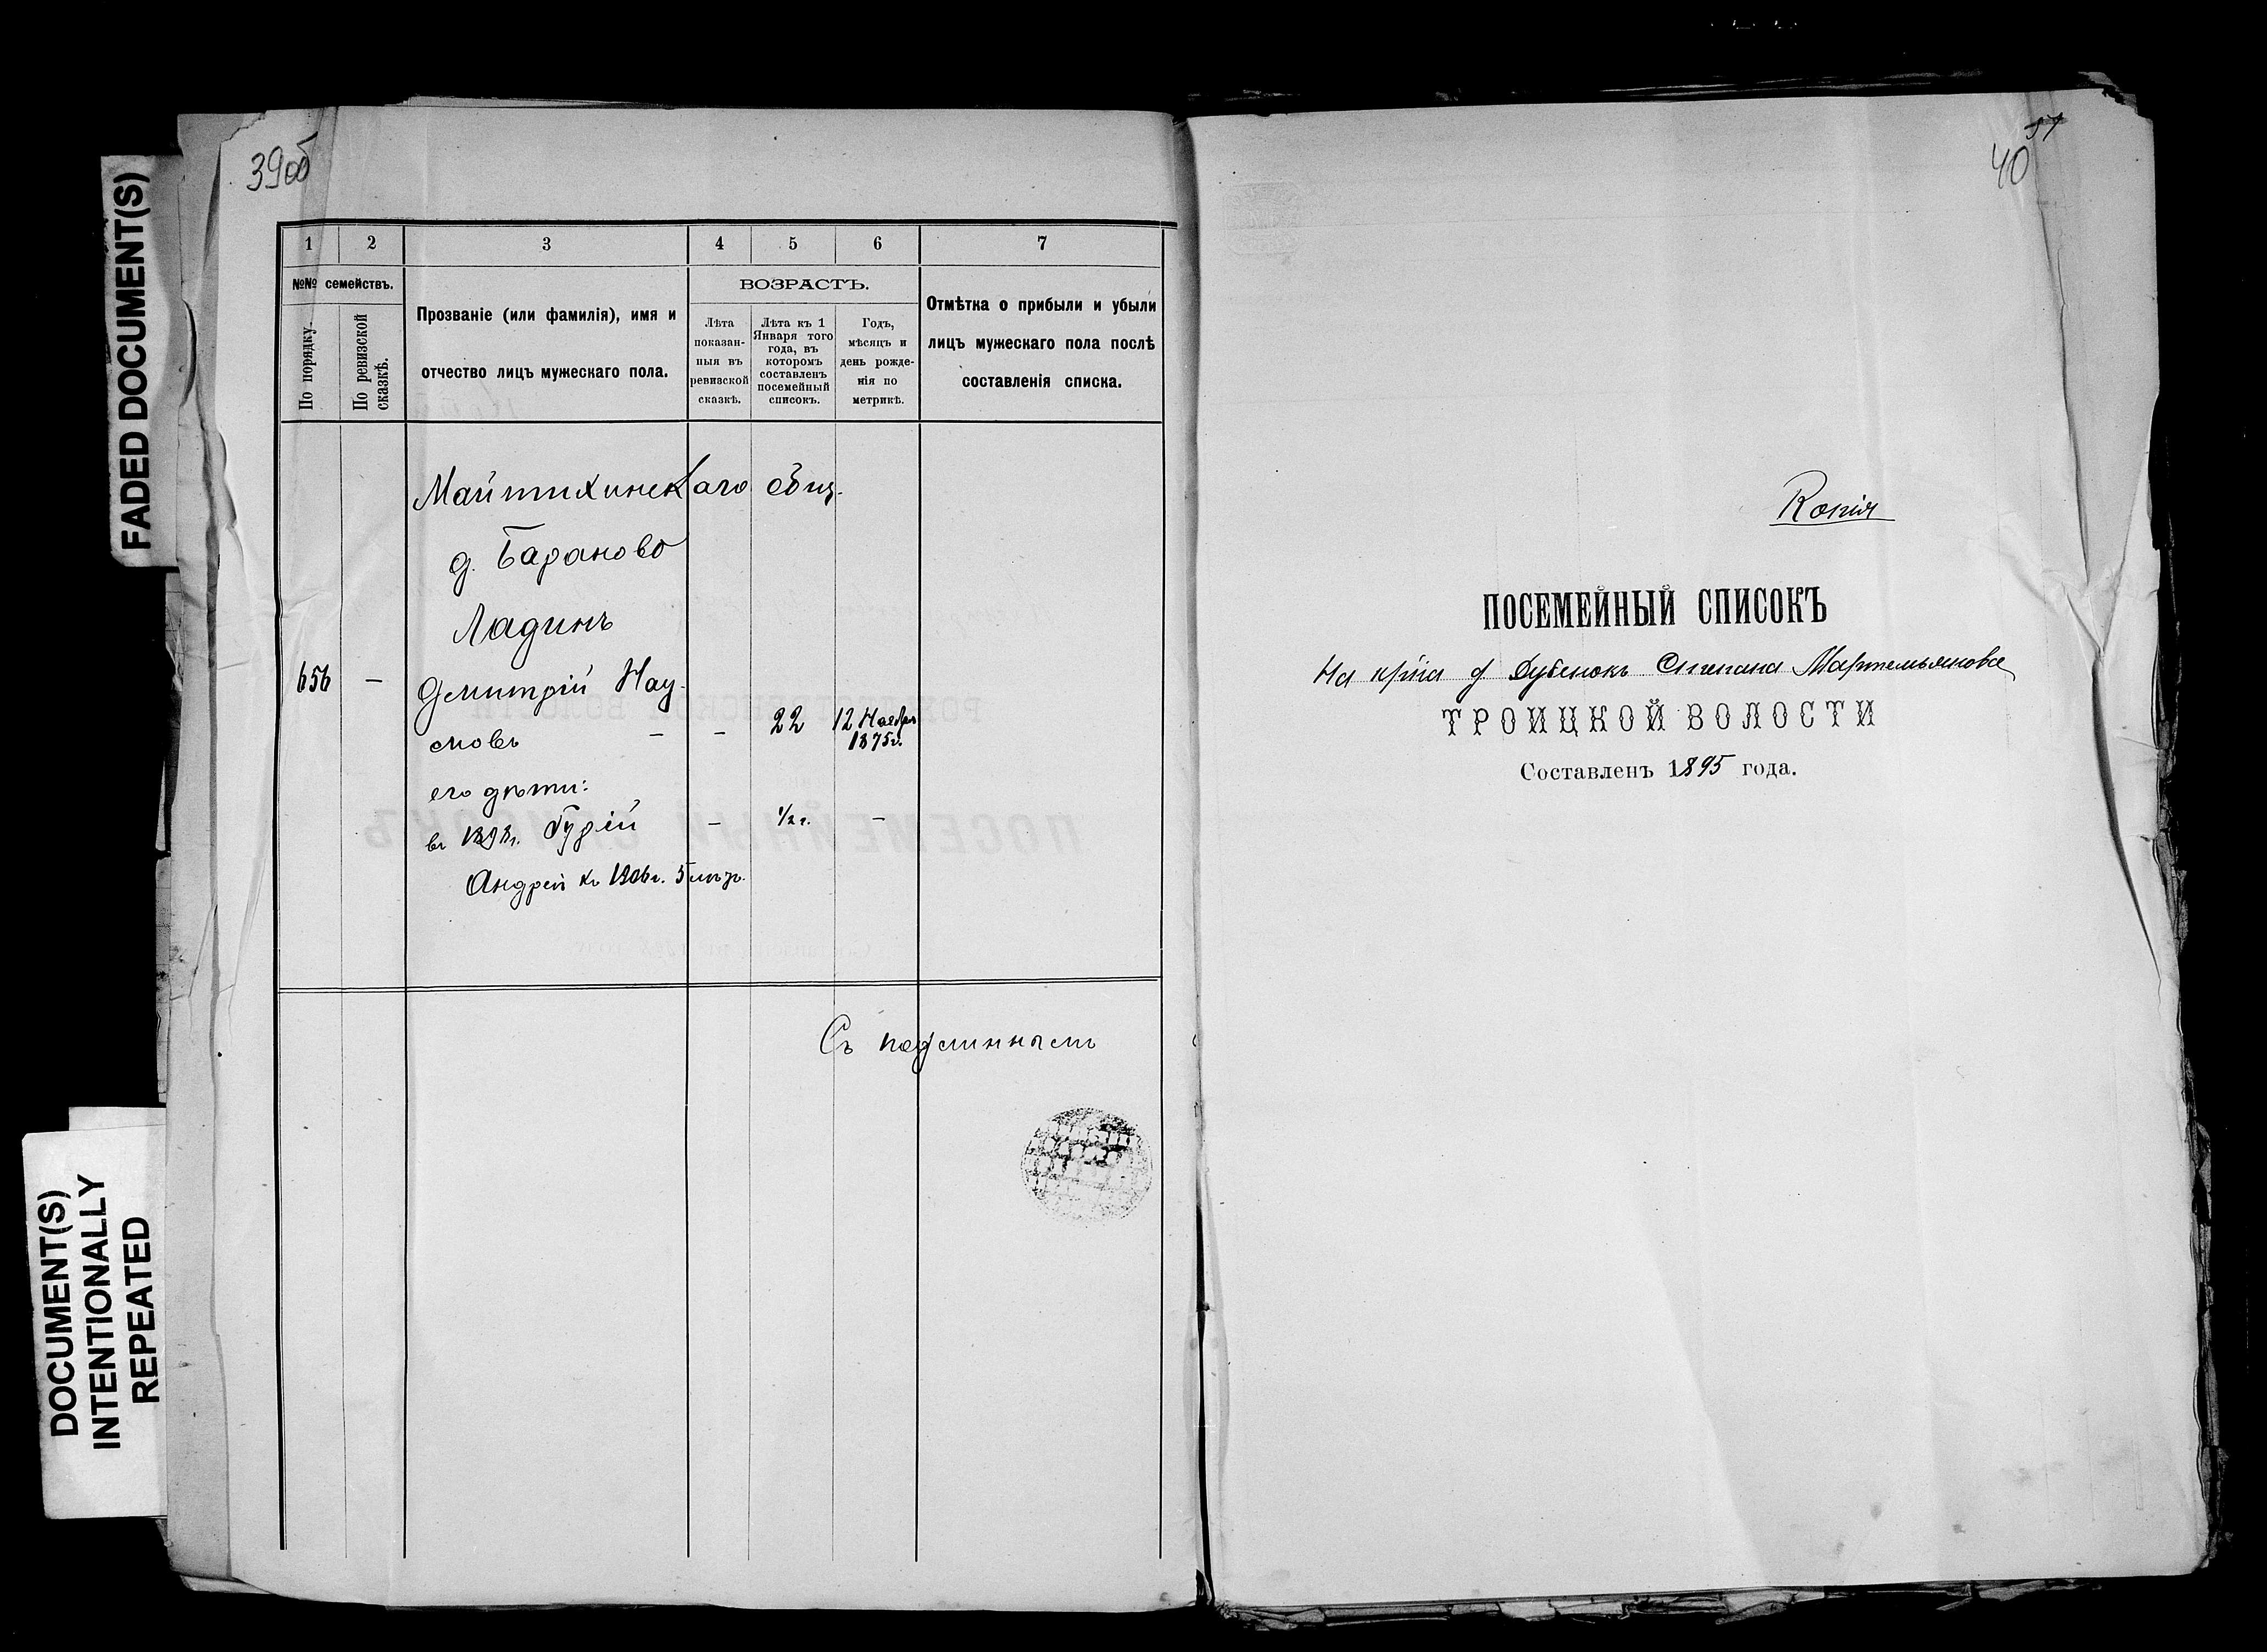 FADED DOCUMENT(S)
DOCUMENT(S)
INTENTIONALLY
REPEATED
39об
1 2 3 4 5 6 7
№№ семействъ.
По порядку.
По ревизской сказкѣ.
Прозваніе (или фамилія), имя и
отчество лицъ мужескаго пола.
ВОЗРАСТЪ.
Лѣта
показан-
ныя въ
ревизской
сказкѣ.
Лѣта къ 1
Января того
года, въ
которомъ
составленъ
посемейный
списокъ.
Годъ,
мѣсяцъ и
день рожде-
нія по
метрикѣ.
Отмѣтка о прибыли и убыли
лицъ мужескаго пола послѣ
составленія списка.
Майтихинскаго общ.
д. Бараново
Ладинъ
656 — Дмитрій Нау-
мовъ — — 22 12 Ноябр
1875г.
его дѣти:
въ 1898г. Гурій — 1/2 г. —
Андрей къ 1906г. 5 мѣс.
Съ подлиннымъ
51
40
Копія
ПОСЕМЕЙНЫЙ СПИСОКЪ
На кр̃на д Дубенокъ Степана Мартемьянова
ТРОИЦКОЙ ВОЛОСТИ
Составленъ 1895 года.